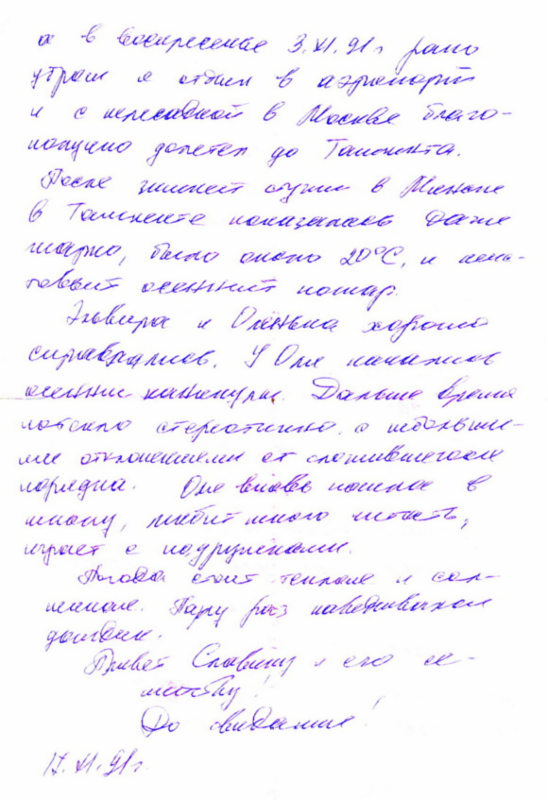 а в воскресенье 3.XI.91г рано
утром я отбыл в аэропорт
и с пересадкой в Москве благо-
получно долетел до Ташкента.
После зимней стужи в Минске
в Ташкенте показалось даже
жарко, было около 20°С, и
осенний пожар.
Эльвира и Оленька хорошо
справлялись. У Оли начались
осенние каникулы. Дальше время
потекло стереотипно с небольши-
ми отклонениями от сложившегося
порядка. Оля вновь пошла в
школу, любит много читать,
играет с подружками.
Погода стоит теплая и сол-
нечная. Пару раз наведывался
дождик.
Привет Славику и его се-
мейству!
До свидания!
17.XI.91г.